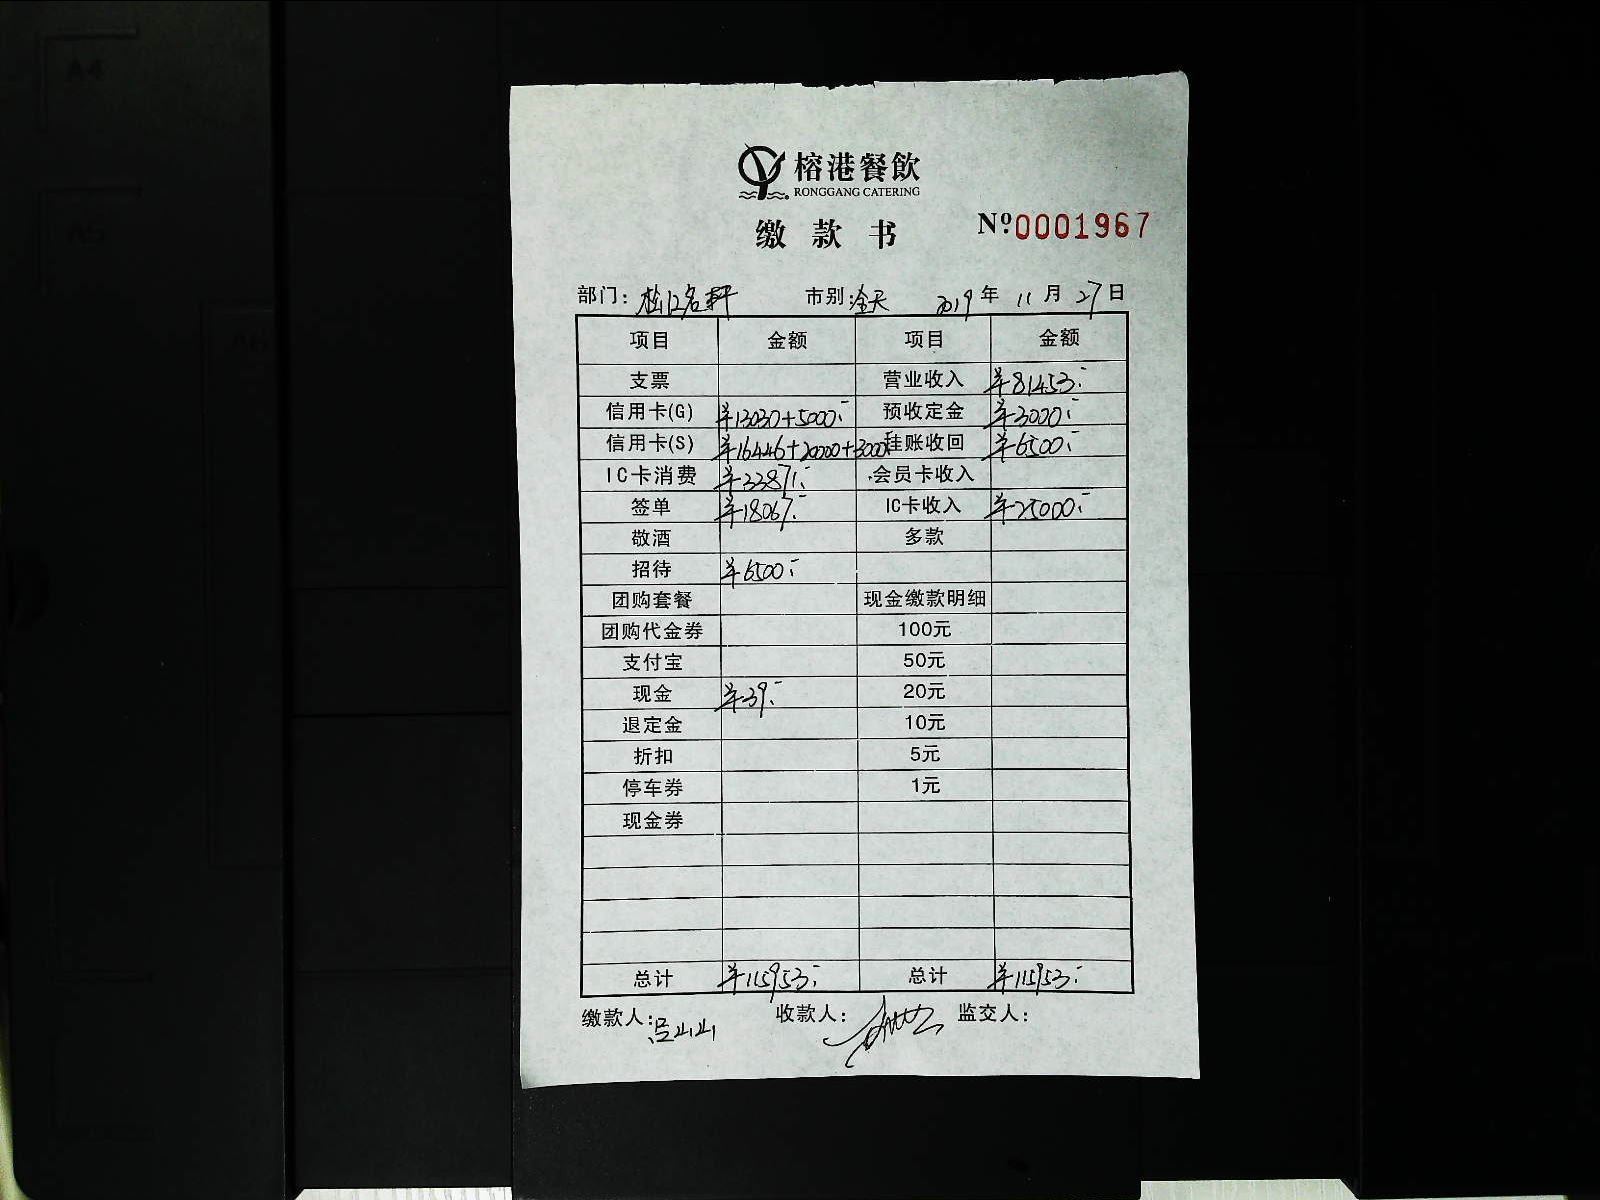 A4
A5
A6
榕港餐飲
RONGGANG CATERING
缴款书
Nº0001967
部门: 松江名轩 市别: 全天 2019 年 11 月 27 日
项目 金额 项目 金额
支票 营业收入 ¥81453.-
信用卡(G) ¥13030+5000.- 预收定金 ¥3000.-
信用卡(S) ¥16446+20000+3000 挂账收回 ¥6500.-
IC卡消费 ¥33871.- 会员卡收入
签单 ¥18067.- IC卡收入 ¥25000.-
敬酒 多款
招待 ¥6500.-
团购套餐 现金缴款明细
团购代金券 100元
支付宝 50元
现金 ¥39.- 20元
退定金 10元
折扣 5元
停车券 1元
现金券
总计 ¥115953.- 总计 ¥115953.-
缴款人: 吕山山 收款人: 监交人: